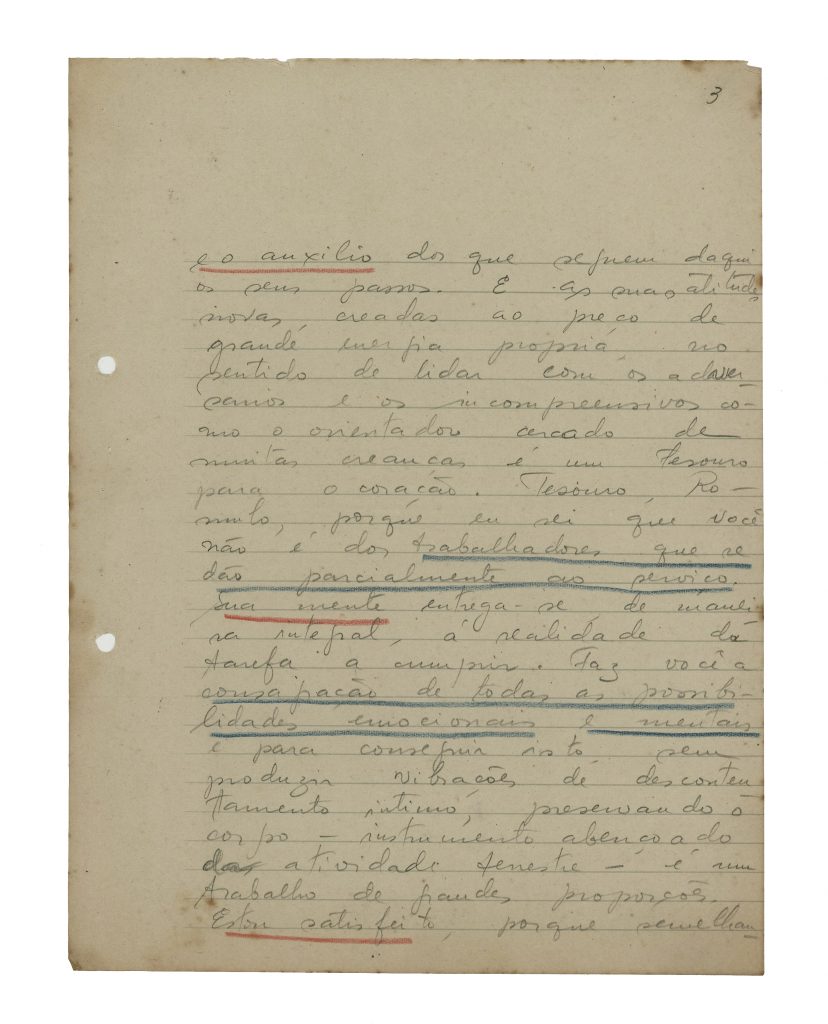 3
e o auxilio dos que seguem daqui
os seus passos. E as suas atitudes
novas, creadas ao preço de
grande energia propria, no
sentido de lidar com os adver-
sarios e os incompreensivos co-
mo o orientador cercado de
muitas creanças é um tesouro
para o coração. Tesouro, Ro-
mulo, porque eu sei que você
não é dos trabalhadores que se
dão parcialmente ao serviço.
Sua mente entrega-se, de manei
ra integral, á realidade da
tarefa a cumprir. Faz você a
consagração de todas as possibi-
lidades emocionais e mentais
e para conseguir isto, sem
produzir vibrações de desconten
tamento intimo, preservando o
corpo – instrumento abençoado
da atividade terrestre – é um
trabalho de grandes proporções.
Estou satisfeito, porque semelhan-